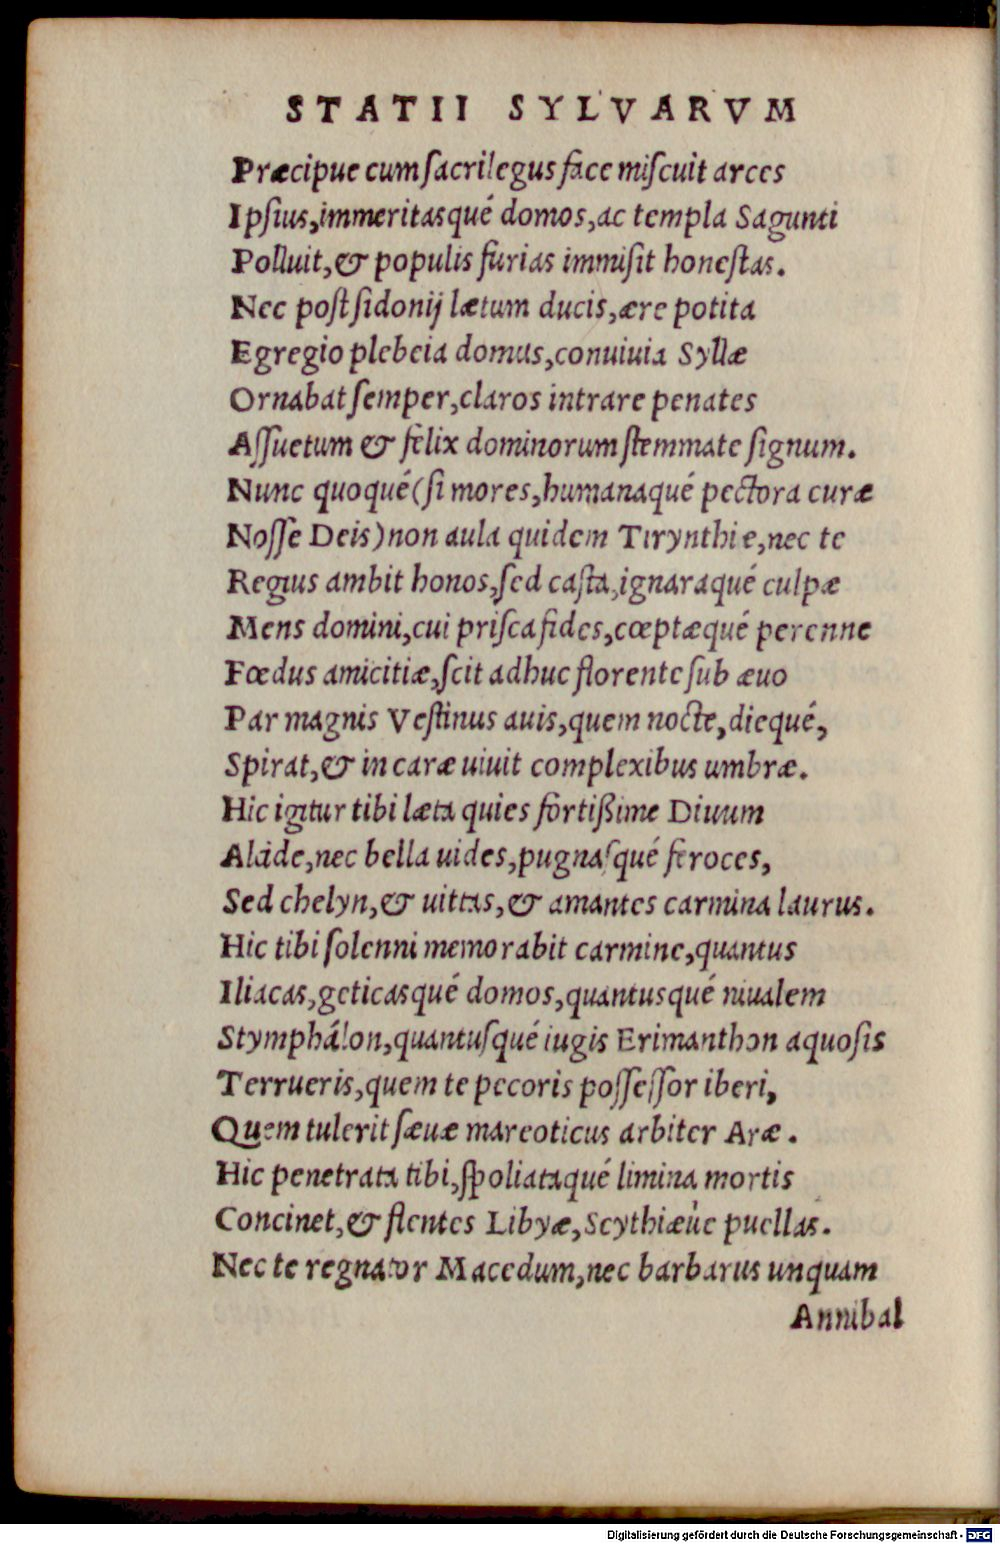 STATII SYLVARVM
Præcipue cum ſacrilegus face miſcuit arces
Ipſius,immeritasqué domos,ac templa Sagunti
Polluit,& populis furias immiſit honeſtas.
Nec poſt ſidonij lætum ducis,ære potita
Egregio plebeia domus,conuiuia Syllæ
Ornabat ſemper,claros intrare penates
Aſſuetum & felix dominorum ſtemmate ſignum.
Nunc quoqué(ſi mores,humanaqué pectora curæ
Noſſe Deis)non aula quidem Tirynthie,nec te
Regius ambit honos,ſed caſta,ignaraqué culpæ
Mens domini,cui priſca fides,cœptæqué perenne
Fœdus amicitiæ,ſcit adhuc florente ſub æuo
Par magnis Veſtinus auis,quem nocte,diequé,
Spirat,& in caræ uiuit complexibus umbræ.
Hic igitur tibi læta quies fortißime Diuum
Alcide,nec bella uides,pugnaſqué feroces,
Sed chelyn,& uittas,& amantes carmina laurus.
Hic tibi ſolenni memorabit carmine,quantus
Iliacas,geticasqué domos,quantusqué niualem
Stymphálon,quantuſqué iugis Erimanthon aquoſis
Terrueris,quem te pecoris poſſeſſor iberi,
Quem tulerit ſæuæ mareoticus arbiter Aræ.
Hic penetrata tibi,ſpoliataqué limina mortis
Concinet,& flentes Libyæ,Scythiæùe puellas.
Nec te regnator Macedum,nec barbarus unquam
Annibal
Digitalisierung gefördert durch die Deutsche Forschungsgemeinschaft - DFG